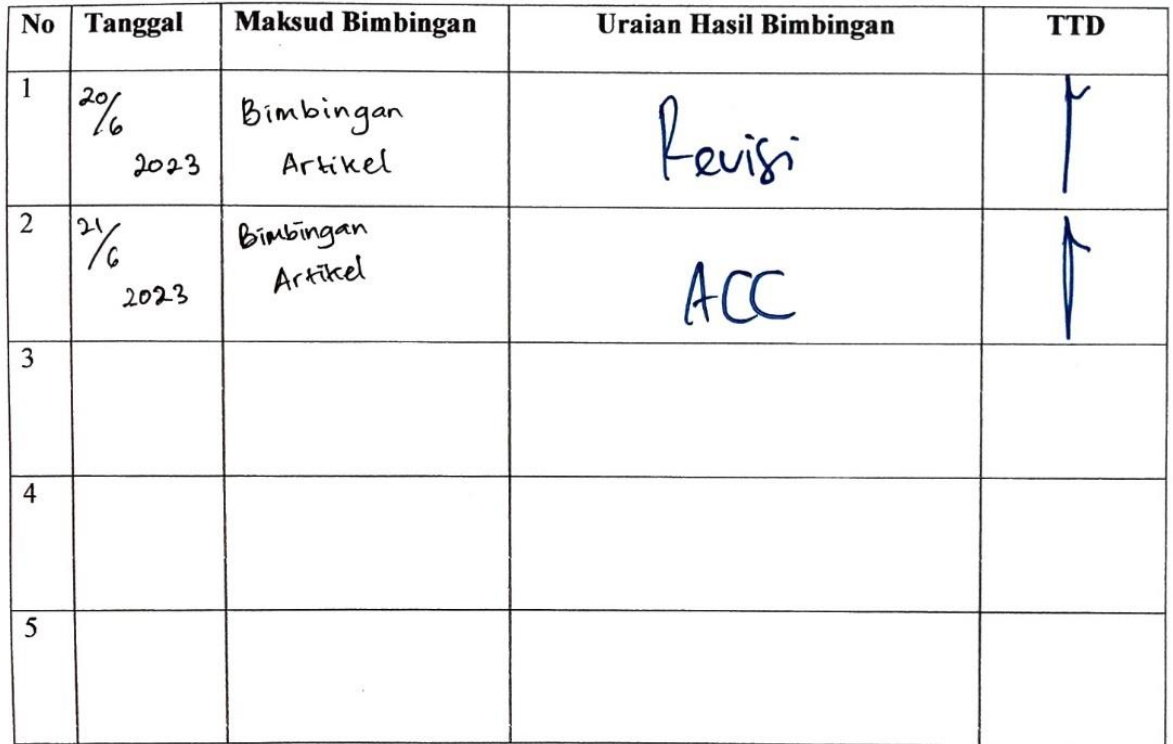 No Tanggal Maksud Bimbingan Uraian Hasil Bimbingan TTD
1 20/6 2023 Bimbingan Artikel Revisi
2 21/6 2023 Bimbingan Artikel ACC
3
4
5